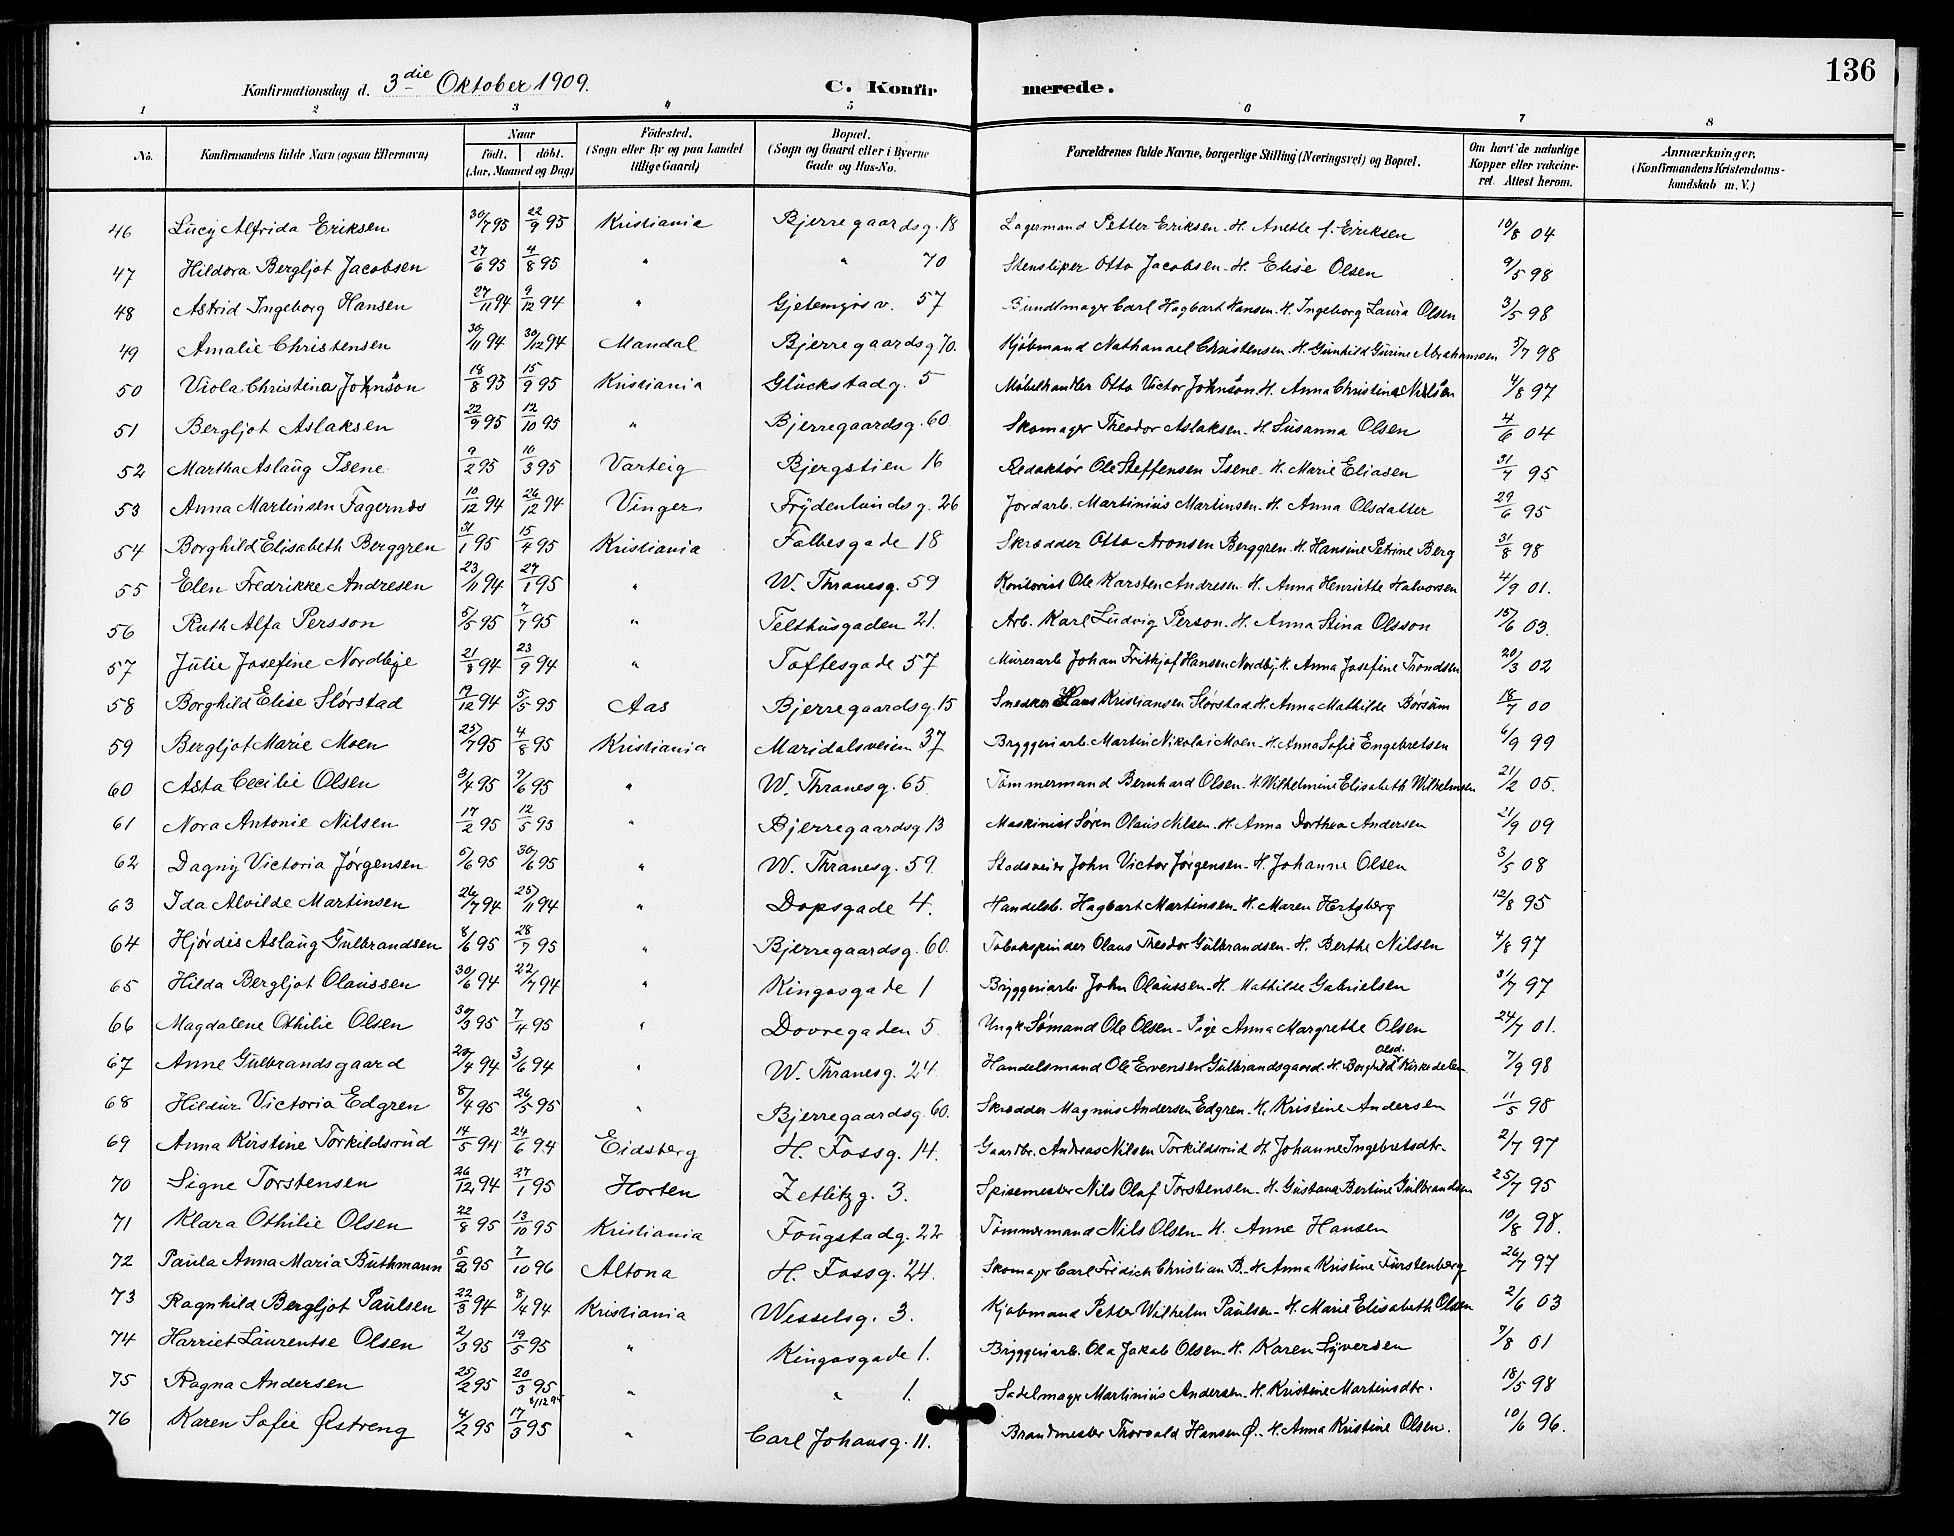 136
Konfirmationsdag d. 3die Oktober 1909. C. Konfirmerede.
1 2 3 4 5 6 7 8
No. Konfirmandens fulde Navn (ogsaa Efternavn) Naar födt. döbt. (Aar, Maaned og Dag) Födested. (Sogn eller By og paa Landet tillige Gaard) Bopæl. (Sogn og Gaard eller i Byerne Gade og Hus-No. Forældrenes fulde Navne, borgerlige Stilling (Næringsvei) og Bopæl. Om havt de naturlige Kopper eller vakcineret. Attest herom. Anmærkninger. (Konfirmandens Kristendomskundskab m. V.)
46 Lucy Alfrida Eriksen 30/7 95 22/9 95 Kristiania Bjerregaardsg. 18 Lagermand Petter Eriksen. H. Anette f. Eriksen 10/8 04
47 Hildora Bergljot Jacobsen 27/6 95 4/8 95 " " 70 Stensliper Otto Jacobsen. H. Elise Olsen 9/5 98
48 Astrid Ingeborg Hansen 27/11 94 9/12 94 " Gjetemyrsv. 57 Bundtmager Carl Hagbart Hansen. H. Ingeborg Laura Olsen 3/5 98
49 Amalie Christensen 30/11 94 30/12 94 Mandal Bjerregaardsg 70. Kjøbmand Nathanael Christensen. H. Gunhild Gurine Abrahamsen 5/7 98
50 Viola Christina Johnson 18/8 95 15/9 95 Kristiania Glückstadg. 5 Møbelhandler Otto Victor Johnson. H. Anna Christina Nilsen 4/8 97
51 Bergljot Aslaksen 22/9 95 12/10 95 " Bjerregaardsg. 60. Skomager Theodor Aslaksen. H. Susanna Olsen 4/6 04
52 Martha Aslaug Isene 9/2 95 10/3 95 Varteig Bjergstien 16 Redaktør Ole Steffensen Isene. H. Marie Eliasen 31/7 95
53 Anna Martinsen Fagernæs 10/12 94 26/12 94 Vinger Frydenlundsg. 26 Jordarb. Martinius Martinsen. H. Anna Olsdatter 29/6 95
54 Borghild Elisabeth Berggren 31/1 95 15/4 95 Kristiania Falbesgade 18 Skrædder Otto Aronsen Berggren. H. Hansine Petrine Berg 31/8 98
55 Elen Fredrikke Andresen 23/11 94 27/1 95 " W. Thranesg. 59 Kontorist Ole Karsten Andresen. H. Anna Henriette Halvorsen 4/9 01.
56 Ruth Alfa Persson 5/5 95 7/7 95 " Telthusgaden 21. Arb. Karl Ludvig Person. H. Anna Stina Olsson 15/6 03.
57 Julie Josefine Nordbye 21/8 94 23/9 94 " Toftesgade 57 Murerarb Johan Fritkjof Hansen Nordby. H. Anna Josefine Trondsen 20/3 02
58 Borghild Elise Slørstad 19/12 94 5/5 95 Aas Bjerregaardsg. 15 Snedker Hans Kristiansen Slørstad. H. Anna Mathilde Børsum 18/7 00
59 Bergljot Marie Moen 25/7 95 4/8 95 Kristiania Maridalsveien 37 Bryggeriarb. Martin Nikolai Moen. H. Anna Sofie Engebretsen 6/9 99
60 Asta Cecilie Olsen 3/4 95 9/6 95 " W. Thranesg. 65. Tømmermand Bernhard Olsen. H. Wilhelmine Elisabeth Wilhelmsen 21/2 05.
61 Nora Antonie Nilsen 17/2 95 12/5 95 " Bjerregaardsg 13 Maskinist Søren Olaus Nilsen. H. Anna Dorthea Andersen 21/9 09
62 Dagny Victoria Jørgensen 5/6 95 30/6 95 " W. Thranesg. 59. Stadsveier John Victor Jørgensen. H. Johanne Olsen 3/5 08
63 Ida Alvilde Martinsen 26/7 94 25/11 94 " Dopsgade 4. Handelsb. Hagbart Martinsen. H. Maren Hertzberg 12/8 95
64 Hjørdis Aslaug Gulbrandsen 8/6 95 28/7 95 " Bjerregaardsg. 60. Tobakspinder Olaus Theodor Gulbrandsen. H. Berthe Nilsen 4/8 97
65 Hilda Bergljot Olaussen 30/6 94 22/7 94 " Kingosgade 1 Bryggeriarb. John Olaussen. H. Mathilde Gabrielsen 31/7 97
66 Magdalene Othilie Olsen 30/3 95 7/4 95 " Dovregaden 5. Ungk. Sømand Ole Olsen - Pige Anna Margrethe Olsen 24/7 01.
67 Anne Gulbrandsgaard 20/4 94 3/6 94 " W. Thranesg. 24. Handelsmand Ole Evensen Gulbrandsgaard. H. Borghild Olsd. 7/9 98
68 Hildur Victoria Edgren 8/4 95 26/5 95 " Bjerregaardsg. 60. Skrædder Magnus Andersen Edgren. H. Kristine Andersen 11/5 98
69 Anna Kirstine Torkildsrud 14/5 94 24/6 94 Eidsberg H. Fossg. 14. Gaardbr. Andreas Nilsen Torkildsrud H. Johanne Ingebretsdtr. 2/7 97
70 Signe Torstensen 26/12 94 27/1 95 Horten Zetlitzg. 3. Spisemester Nils Olaf Torstensen. H. Gustava Bertine Gulbrandsen 25/7 95
71 Klara Othilie Olsen 22/8 95 13/10 95 Kristiania Fougstadg. 22 Tømmermand Nils Olsen. H. Anne Hansen 10/8 98.
72 Paula Anna Maria Buthmann 5/2 95 7/10 96 Altona H. Fossg. 24. Skomager Carl Fridich Christian B. H. Anna Kristine Fürstenberg 26/7 97
73 Ragnhild Bergljot Paulsen 22/3 94 8/4 94 Kristiania Wesselsg. 3. Kjøbmand Petter Wilhelm Paulsen. H. Marie Elisabeth Olsen 2/6 03
74 Harriet Laurentse Olsen 2/3 95 19/5 95 " Kingosgade 1. Bryggeriarb. Ola Jakob Olsen. H. Karen Syversen 7/8 01
75 Ragna Andersen 25/2 95 20/3 95 " " 1. Sadelmager Martinius Andersen. H. Kristine Martinsdtr. 18/5 98
76 Karen Sofie Østreng 4/2 95 17/3 95 " Carl Johansg. 11. Brandmester Thorvald Hansen Ø. H. Anna Kristine Olsen. 10/6 96.